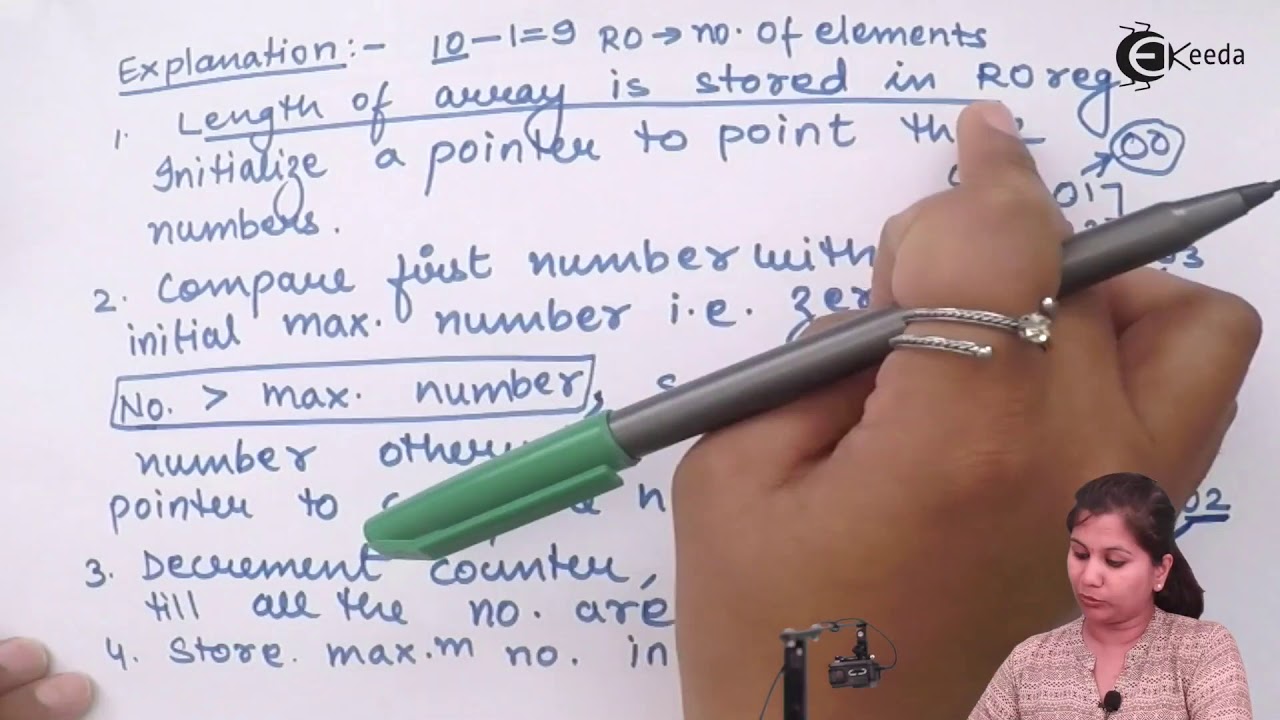 Explanation:- 10-1=9 R0→no. of elements
EKeeda
1. Length of array is stored in R0 reg
Initialize a pointer to point the
00
numbers.
017
2. Compare first number with
03
initial max. number i.e.
No. > max. number,
number
pointer to
02
3. Decrement counter,
till all the no. are
4. Store max.m no. in